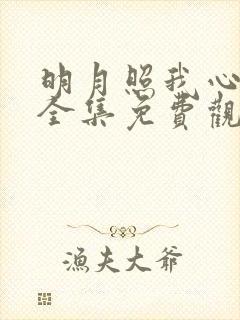 明月照我心
全集免費觀
漁夫大爺